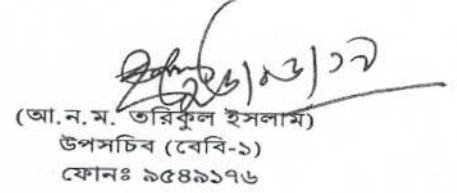 (আ.ন.ম. তরিকুল ইসলাম)
উপসচিব (বেবি-১)
ফোনঃ ৯৫৪৯১৭৬